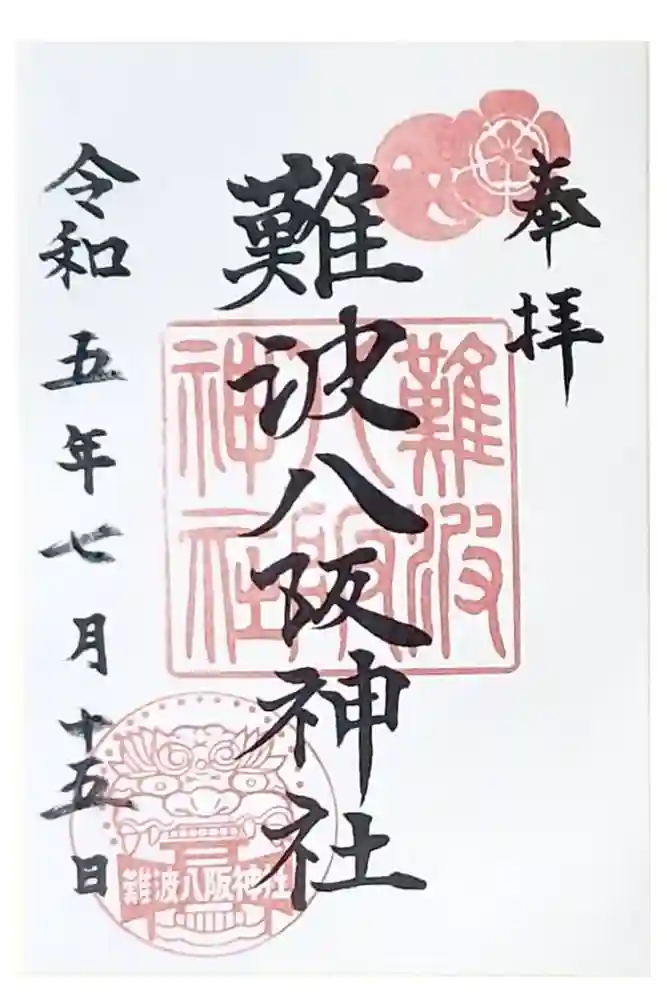 奉拝
難波八阪神社
難波
八阪
神社
令和五年七月十五日
難波八阪神社